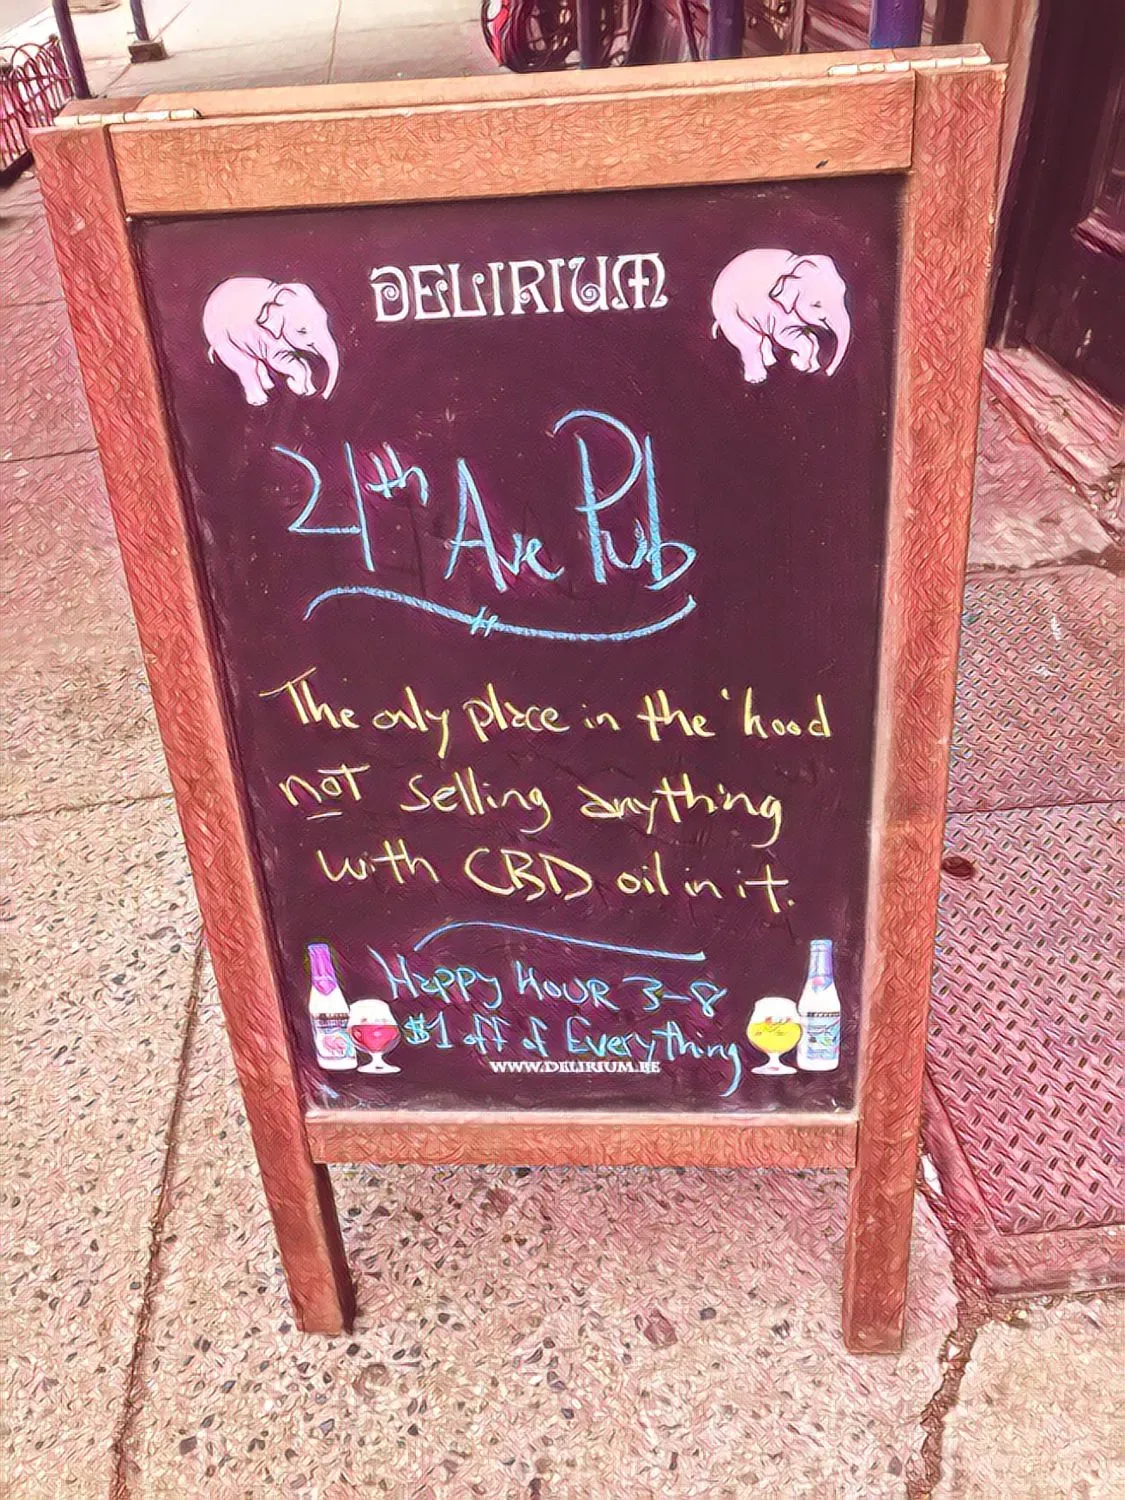 DELIRIUM
21th Ave Pub
The only place in the 'hood
not selling anything
with CBD oil in it.
Happy HOUR 3-8
$1 off of Everything
WWW.DELIRIUM.BE